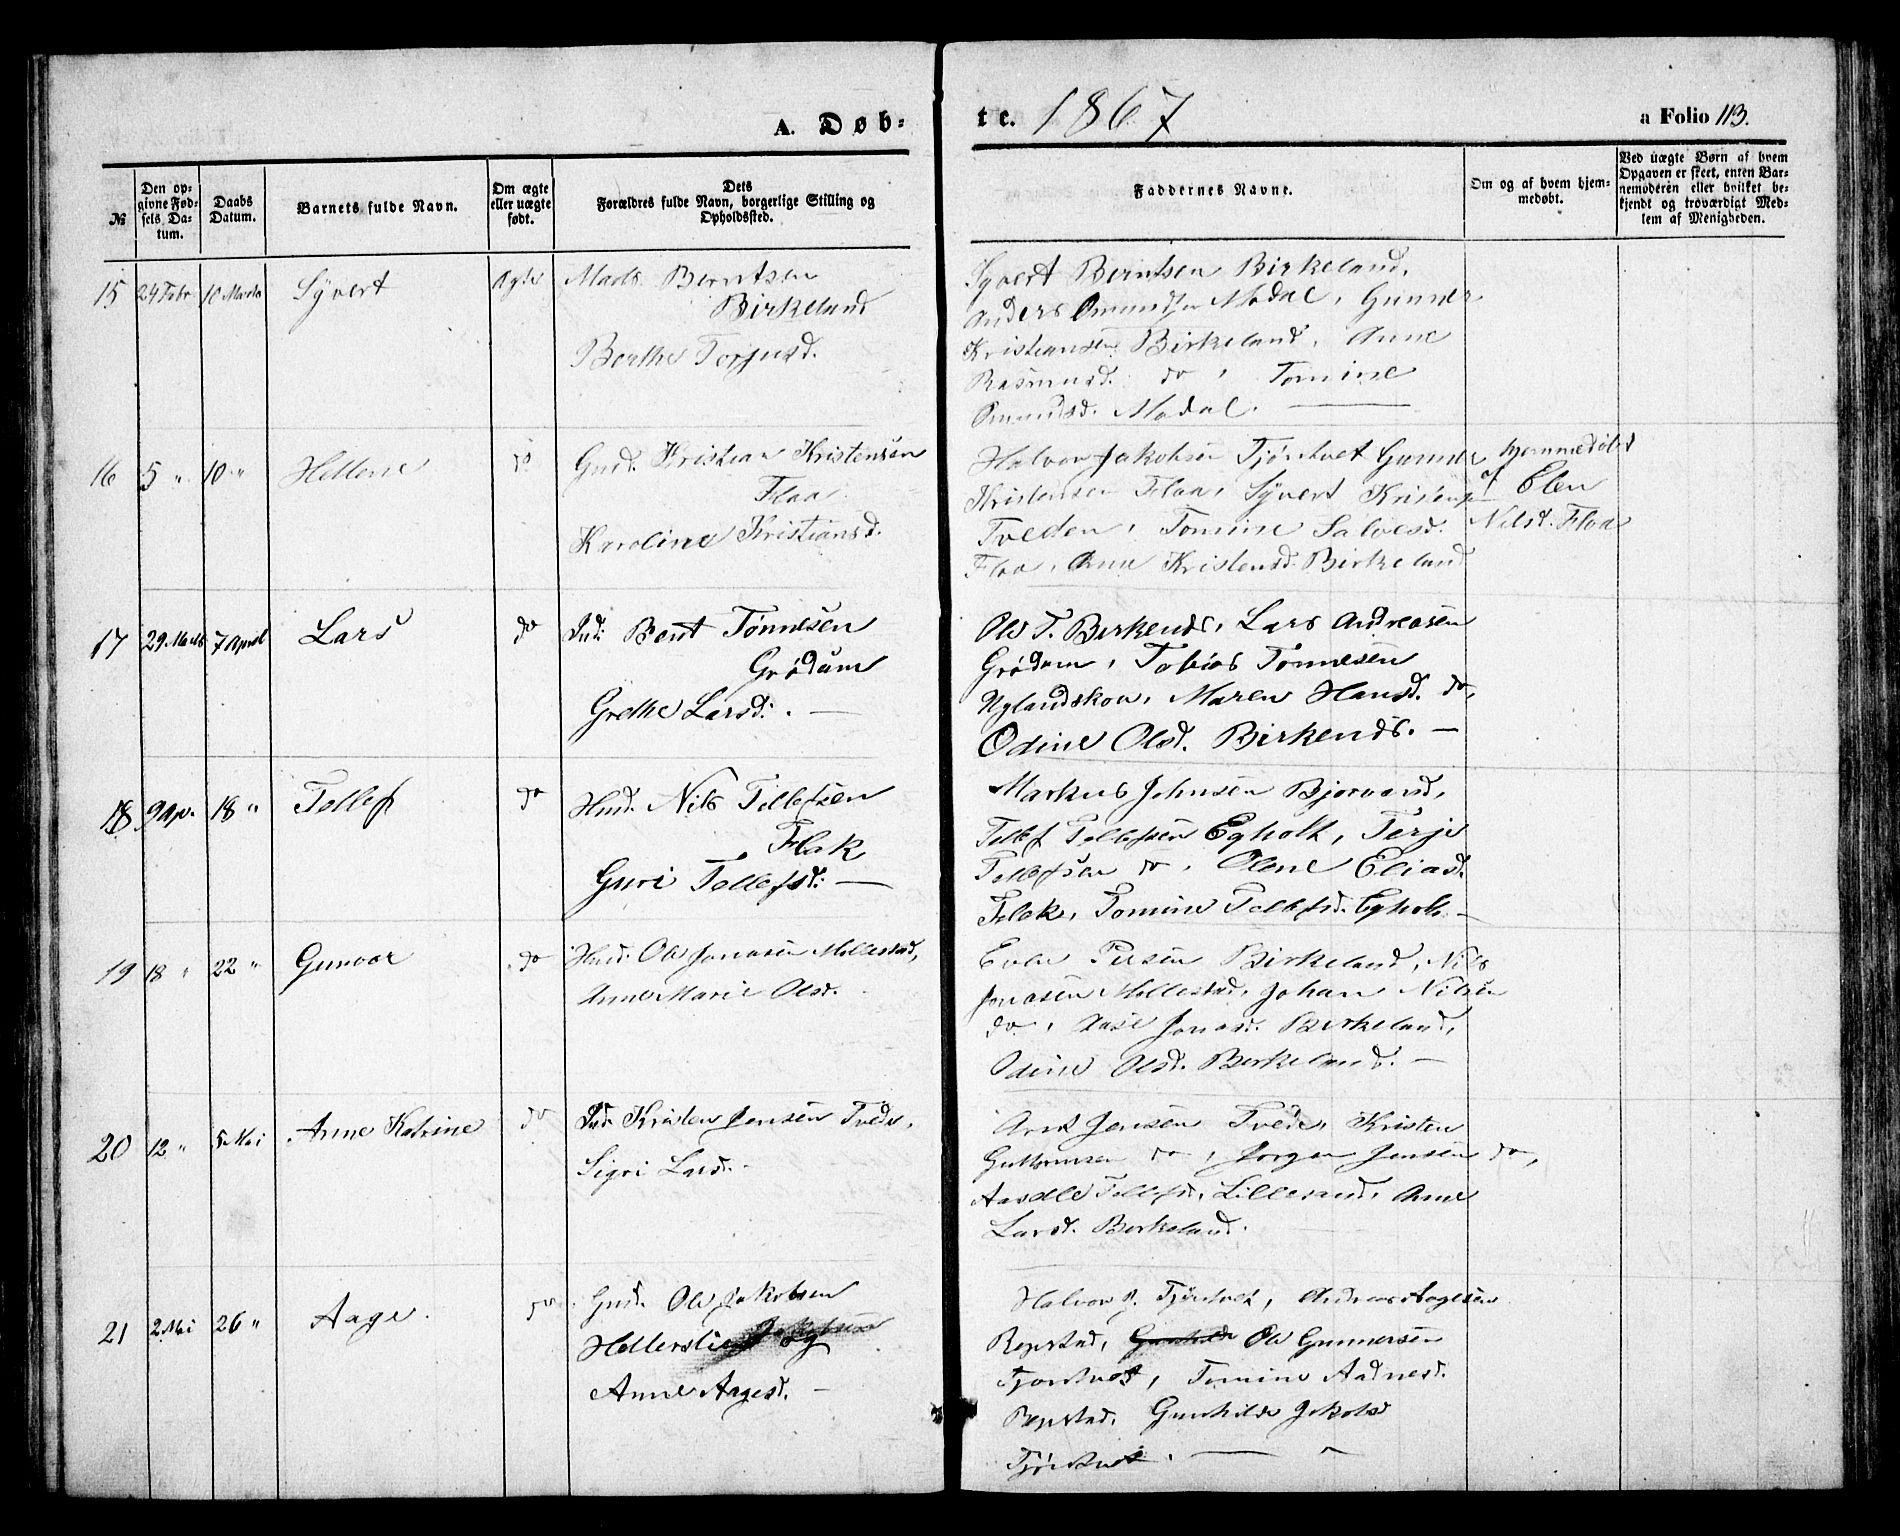 A. Døb-
t e. 1867
a Folio 113.
№
Den op-
givne Fød-
sels Da-
tum.
Daabs
Datum.
Barnets fulde Navn.
Om ægte
eller uægte
født.
Dets
Forældres fulde Navn, borgerlige Stilling og
Opholdssted.
Faddernes Navne.
Om og af hvem hjem-
medøbt.
Ved uægte Børn af hvem
Opgaven er skeet, enten Bar-
nemoderen eller hvilket be-
kjendt og troværdigt Med-
lem af Menigheden.
15 24 Febr 10 Marts Syvert Ægte Mads Berntsen
Birkeland
Berthe Torjusd.
Syvert Berntsen Birkeland,
Anders Omundsen Modal, Gunder
Kristiansen Birkeland, Anne
Rasmusd. do, Tomine
Omundsd. Modal. —
16 5 " 10 " Hellene do Gmd. Kristian Kristensen
Flaa
Karoline Kristiansd.
Halvor Jakobsen Tjøntvet Gunder
Kristensen Flaa, Syvert Kristens
Tvedten, Tomine Salvesd.
Flaa, Anne Kristensd. Birkeland
hjemmedøbt
af Elen
Nilsd. Flaa
17 29 Marts 7 April Lars do Ind: Bent Tønnesen
Grødum
Grethe Larsd: . —
Ole T. Birkends, Lars Andreasen
Grødum, Tobias Tønnesen
Nylandskov, Maren Hansd. do,
Odine Olsd. Birkends. —
18 9 Ap. 18 " Tellef do Hmd. Nils Tellefsen
Flak
Guri Tellefsd: —
Markus Johnsen Bjorvand,
Tellef Tellefsen Egholt, Terje
Tellefsen do, Olene Eliasd.
Flak, Tomine Tellefsd. Egholt. —
19 18 " 22 " Gunvor do Hmd. Ole Jonasen Mollestad,
Anne Marie Olsd.
Even Persen Birkeland, Nils
Jonasen Mollestad, Johan Nilsen
do, Aase Jonasd. Birkeland,
Odine Olsd. Birkeland. —
20 12 " 5 Mai Anne Katrine do Ind. Kristen Jensen Tvede,
Sigri Larsd. -
Arnt Jensen Tvede, Kristen
Guttormsen do, Jørgen Jensen do,
Tellefsd, Lillesand, Anne
Larsd. Birkeland.
21 2 Mai 26 " Aage. do Gmd. Ole Jakobsen
Hellerslie og
Anne Aagesd. —
Halvor J. Tjøntvet, Andreas Aagesen
Repstad, Gunhilde Ole Gunnersen
Tjøntvet, Tomine Aadnesd.
Repstad, Gunhilde Jakobsd
Tjøntvet. —